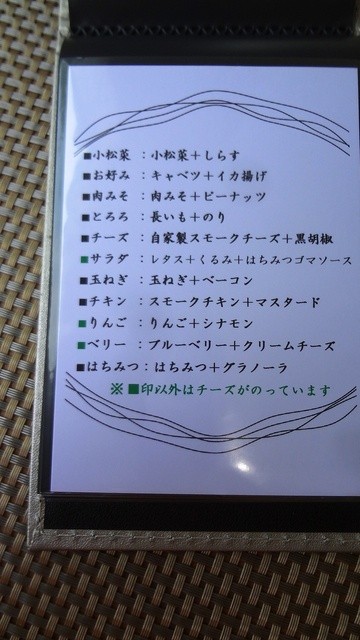 ■小松菜 : 小松菜＋しらす
■お好み : キャベツ＋イカ揚げ
■肉みそ : 肉みそ＋ピーナッツ
■とろろ : 長いも＋のり
■チーズ : 自家製スモークチーズ＋黒胡椒
■サラダ : レタス＋くるみ＋はちみつゴマソース
■玉ねぎ : 玉ねぎ＋ベーコン
■チキン : スモークチキン＋マスタード
■りんご : りんご＋シナモン
■ベリー : ブルーベリー＋クリームチーズ
■はちみつ : はちみつ＋グラノーラ
※ ■印以外はチーズがのっています